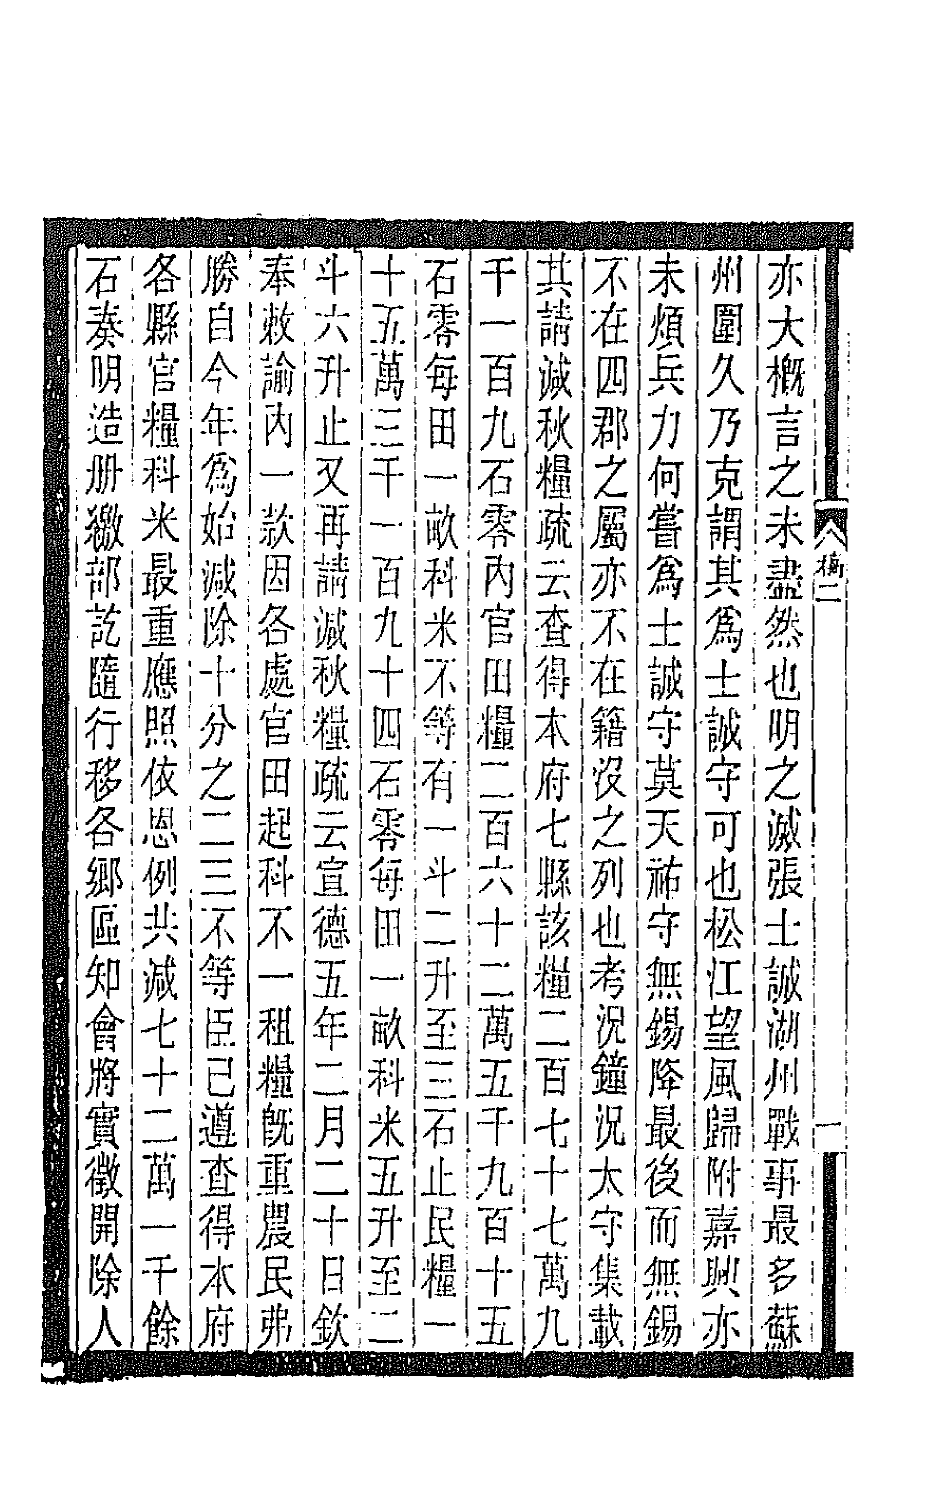 亦大槪言之未盡然也明之滅張士誠湖州戰事最多蘇
州圍久乃克謂其爲士誠守可也松江望風歸附嘉興亦
未煩兵力何嘗爲士誠守莫天祐守無錫降最後而無錫
不在四郡之屬亦不在籍沒之列也考況鐘況太守集載
其請減秋糧疏云查得本府七縣該糧二百七十七萬九
千一百九石零內官田糧二百六十二萬五千九百十五
石零每田一畝科米不等有一斗二升至三石止民糧一
十五萬三千一百九十四石零每田一畝科米五升至二
斗六升止又再請減秋糧疏云宣德五年二月二十日欽
奉敕諭內一款因各處官田起科不一租糧旣重農民弗
勝自今年爲始減除十分之二三不等臣已遵查得本府
各縣官糧科米最重應照依恩例共減七十二萬一千餘
石奏明造册繳部訖隨行移各鄉區知會將實徵開除人
二
一